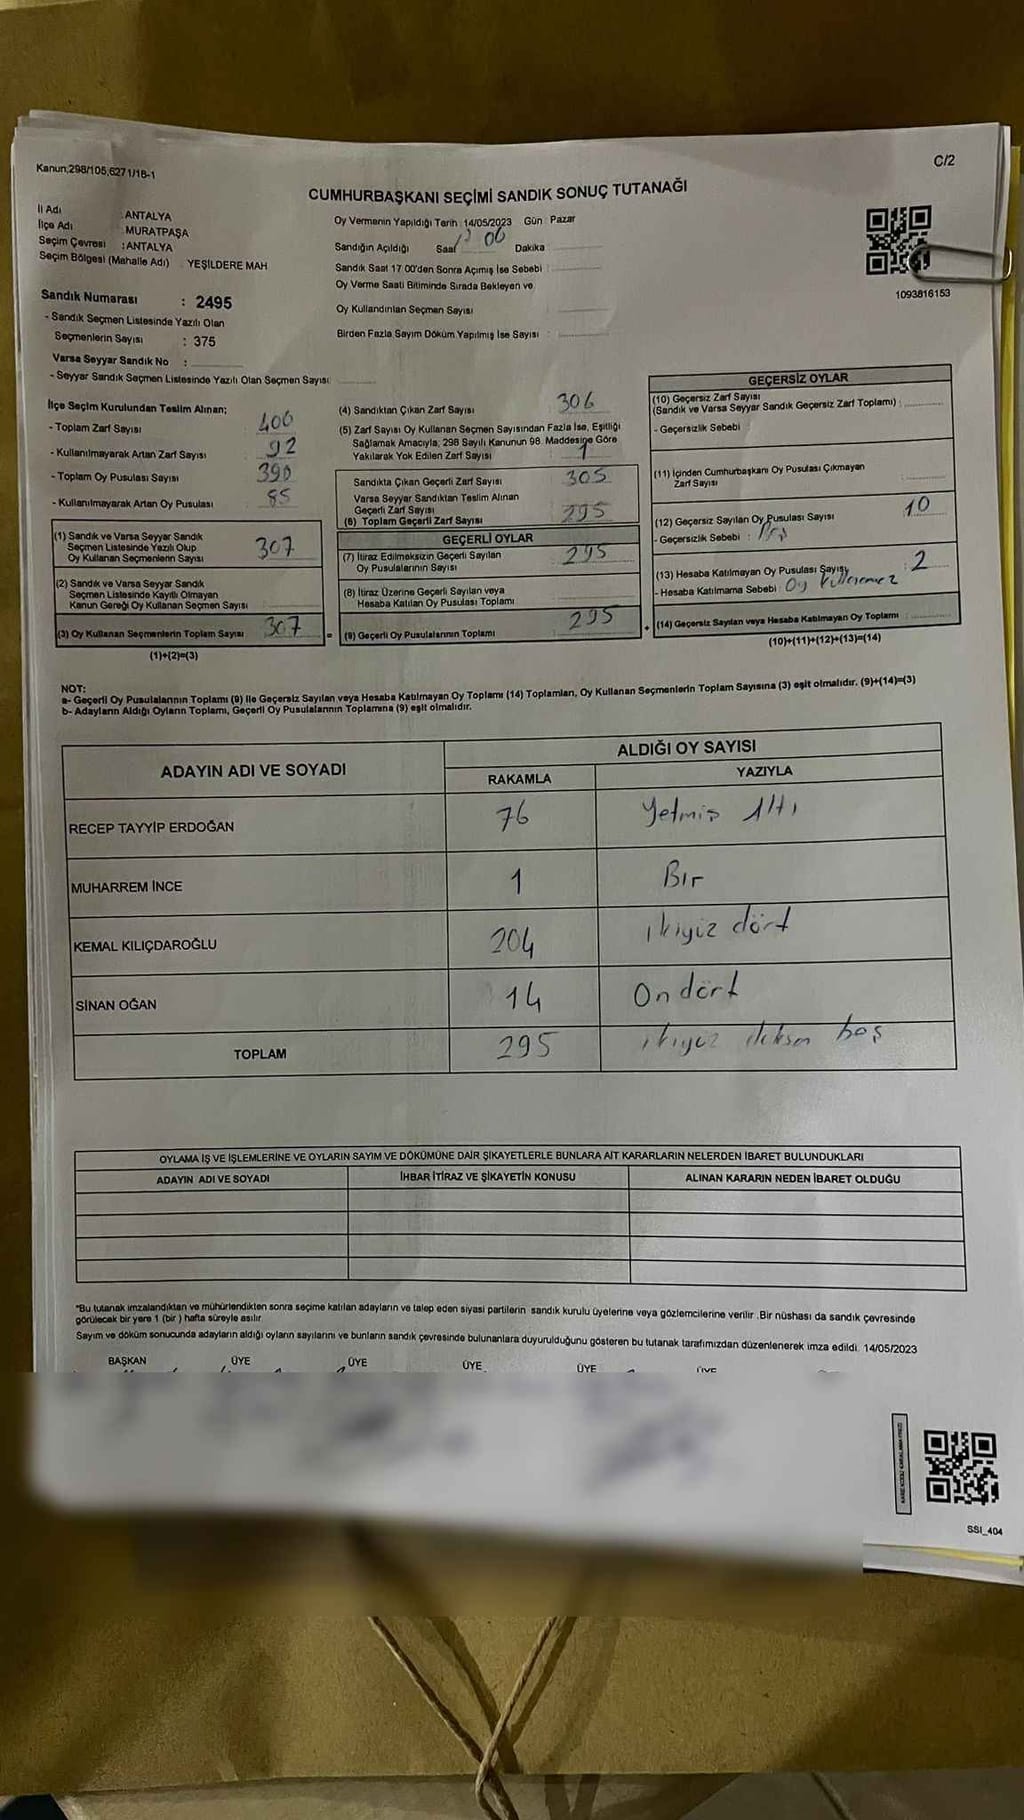 Kanun;298/105,6271/18-1
C/2
CUMHURBAŞKANI SEÇİMİ SANDIK SONUÇ TUTANAĞI
İl Adı : ANTALYA
İlçe Adı : MURATPAŞA
Seçim Çevresi : ANTALYA
Seçim Bölgesi (Mahalle Adı) : YEŞİLDERE MAH
Sandık Numarası : 2495
- Sandık Seçmen Listesinde Yazılı Olan
Seçmenlerin Sayısı : 375
Varsa Seyyar Sandık No :
- Seyyar Sandık Seçmen Listesinde Yazılı Olan Seçmen Sayısı
Oy Vermenin Yapıldığı Tarih : 14/05/2023 Gün : Pazar
Sandığın Açıldığı Saat 00 Dakika
Sandık Saat 17 00'den Sonra Açımış İse Sebebi :
Oy Verme Saati Bitiminde Sırada Bekleyen ve
Oy Kullandırılan Seçmen Sayısı
Birden Fazla Sayım Döküm Yapılmış İse Sayısı :
1093816153
İlçe Seçim Kurulundan Teslim Alınan;
- Toplam Zarf Sayısı 400
- Kullanılmayarak Artan Zarf Sayısı 92
- Toplam Oy Pusulası Sayısı 390
- Kullanılmayarak Artan Oy Pusulası 85
(1) Sandık ve Varsa Seyyar Sandık
Seçmen Listesinde Yazılı Olup
Oy Kullanan Seçmenlerin Sayısı 307
(2) Sandık ve Varsa Seyyar Sandık
Seçmen Listesinde Kayıtlı Olmayan
Kanun Gereği Oy Kullanan Seçmen Sayısı
(3) Oy Kullanan Seçmenlerin Toplam Sayısı 307
(1)+(2)=(3)
=
(4) Sandıktan Çıkan Zarf Sayısı 306
(5) Zarf Sayısı Oy Kullanan Seçmen Sayısından Fazla İse, Eşitliği
Sağlamak Amacıyla, 298 Sayılı Kanunun 98. Maddesine Göre
Yakılarak Yok Edilen Zarf Sayısı 1
Sandıkta Çıkan Geçerli Zarf Sayısı 305
Varsa Seyyar Sandıktan Teslim Alınan
Geçerli Zarf Sayısı
(6) Toplam Geçerli Zarf Sayısı 295
GEÇERLİ OYLAR
(7) İtiraz Edilmeksizin Geçerli Sayılan 295
Oy Pusulalarının Sayısı
(8) İtiraz Üzerine Geçerli Sayılan veya
Hesaba Katılan Oy Pusulası Toplamı
(9) Geçerli Oy Pusulalarının Toplamı 295
+
GEÇERSİZ OYLAR
(10) Geçersiz Zarf Sayısı
(Sandık ve Varsa Seyyar Sandık Geçersiz Zarf Toplamı) :
- Geçersizlik Sebebi
(11) İçinden Cumhurbaşkanı Oy Pusulası Çıkmayan
Zarf Sayısı
(12) Geçersiz Sayılan Oy Pusulası Sayısı 10
- Geçersizlik Sebebi :
(13) Hesaba Katılmayan Oy Pusulası Sayısı 2
- Hesaba Katılmama Sebebi : Oy
(14) Geçersiz Sayılan veya Hesaba Katılmayan Oy Toplamı
(10)+(11)+(12)+(13)=(14)
NOT:
a- Geçerli Oy Pusulalarının Toplamı (9) ile Geçersiz Sayılan veya Hesaba Katılmayan Oy Toplamı (14) Toplamları, Oy Kullanan Seçmenlerin Toplam Sayısına (3) eşit olmalıdır. (9)+(14)=(3)
b- Adayların Aldığı Oyların Toplamı, Geçerli Oy Pusulalarının Toplamına (9) eşit olmalıdır.
ADAYIN ADI VE SOYADI
ALDIĞI OY SAYISI
RAKAMLA YAZIYLA
RECEP TAYYİP ERDOĞAN 76 Yetmiş Altı
MUHARREM İNCE 1 Bır
KEMAL KILIÇDAROĞLU 204 ikiyüz dört
SİNAN OĞAN 14 On dört
TOPLAM 295 ikiyüz doksan beş
OYLAMA İŞ VE İŞLEMLERİNE VE OYLARIN SAYIM VE DÖKÜMÜNE DAİR ŞİKAYETLERLE BUNLARA AİT KARARLARIN NELERDEN İBARET BULUNDUKLARI
ADAYIN ADI VE SOYADI İHBAR İTİRAZ VE ŞİKAYETİN KONUSU ALINAN KARARIN NEDEN İBARET OLDUĞU
*Bu tutanak imzalandıktan ve mühürlendikten sonra seçime katılan adayların ve talep eden siyasi partilerin sandık kurulu üyelerine veya gözlemcilerine verilir .Bir nüshası da sandık çevresinde
görülecek bir yere 1 (bir ) hafta süreyle asılır.
Sayım ve döküm sonucunda adayların aldığı oyların sayılarını ve bunların sandık çevresinde bulunanlara duyurulduğunu gösteren bu tutanak tarafımızdan düzenlenerek imza edildi. 14/05/2023
BAŞKAN ÜYE ÜYE ÜYE ÜYE ÜYE
SSI_404